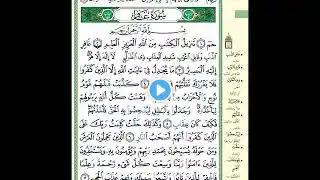 سورة غافر
بسم الله الرحمن الرحيم
حم تنزيل الكتب من الله العزيز العليم غافر
الذنب وقابل التوب شديد العقاب ذي الطول لا إله إلا هو
إليه المصير ما يجدل في ءايت الله إلا الذين كفروا
فلا يغررك تقلبهم في قبلهم قوم
نوح والأحزاب من وهمت كل أمة برسولهم
ليأخذوه وجدلوا بالبطل به الحق فأخذتهم
فكيف كان عقاب وكذلك حقت كلمت ربك على
الذين كفروا أنهم أصحب النار الذين يحملون العرش
ومن حوله يسبحون بحمد ربهم ويؤمنون به ويستغفرون
للذين ءامنوا ربنا وسعت كل شيء رحمة وعلما
فاغفر للذين تابوا واتبعوا سبيلك وقهم عذاب الجحيم